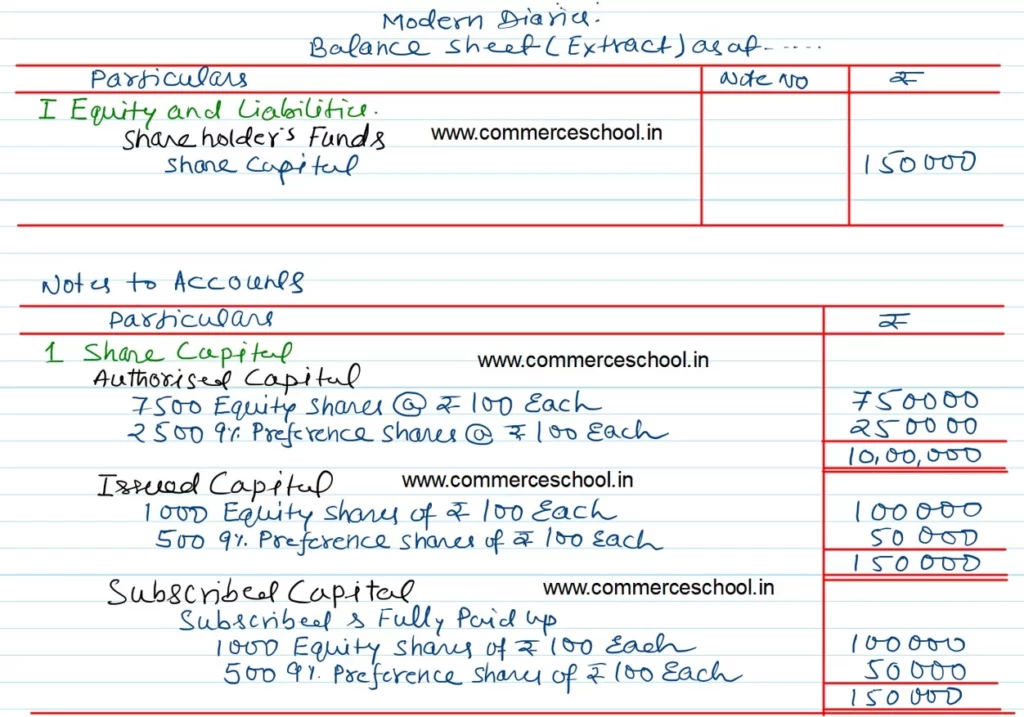 Modern Diaries.
Balance Sheet (Extract) as at .....
Particulars Note No ₹
I Equity and Liabilities.
Shareholder's Funds www.commerceschool.in
Share Capital 150000
Notes to Accounts
Particulars ₹
1 Share Capital www.commerceschool.in
Authorised Capital
7500 Equity Shares @ ₹ 100 Each 750000
2500 9% Preference Shares @ ₹ 100 Each 250000
10,00,000
Issued Capital www.commerceschool.in
1000 Equity Shares of ₹ 100 Each 100000
500 9% Preference Shares of ₹ 100 Each 50000
150000
Subscribed Capital www.commerceschool.in
Subscribed & Fully Paid up
1000 Equity Shares of ₹ 100 Each 100000
500 9% Preference Shares of ₹ 100 Each 50000
150000